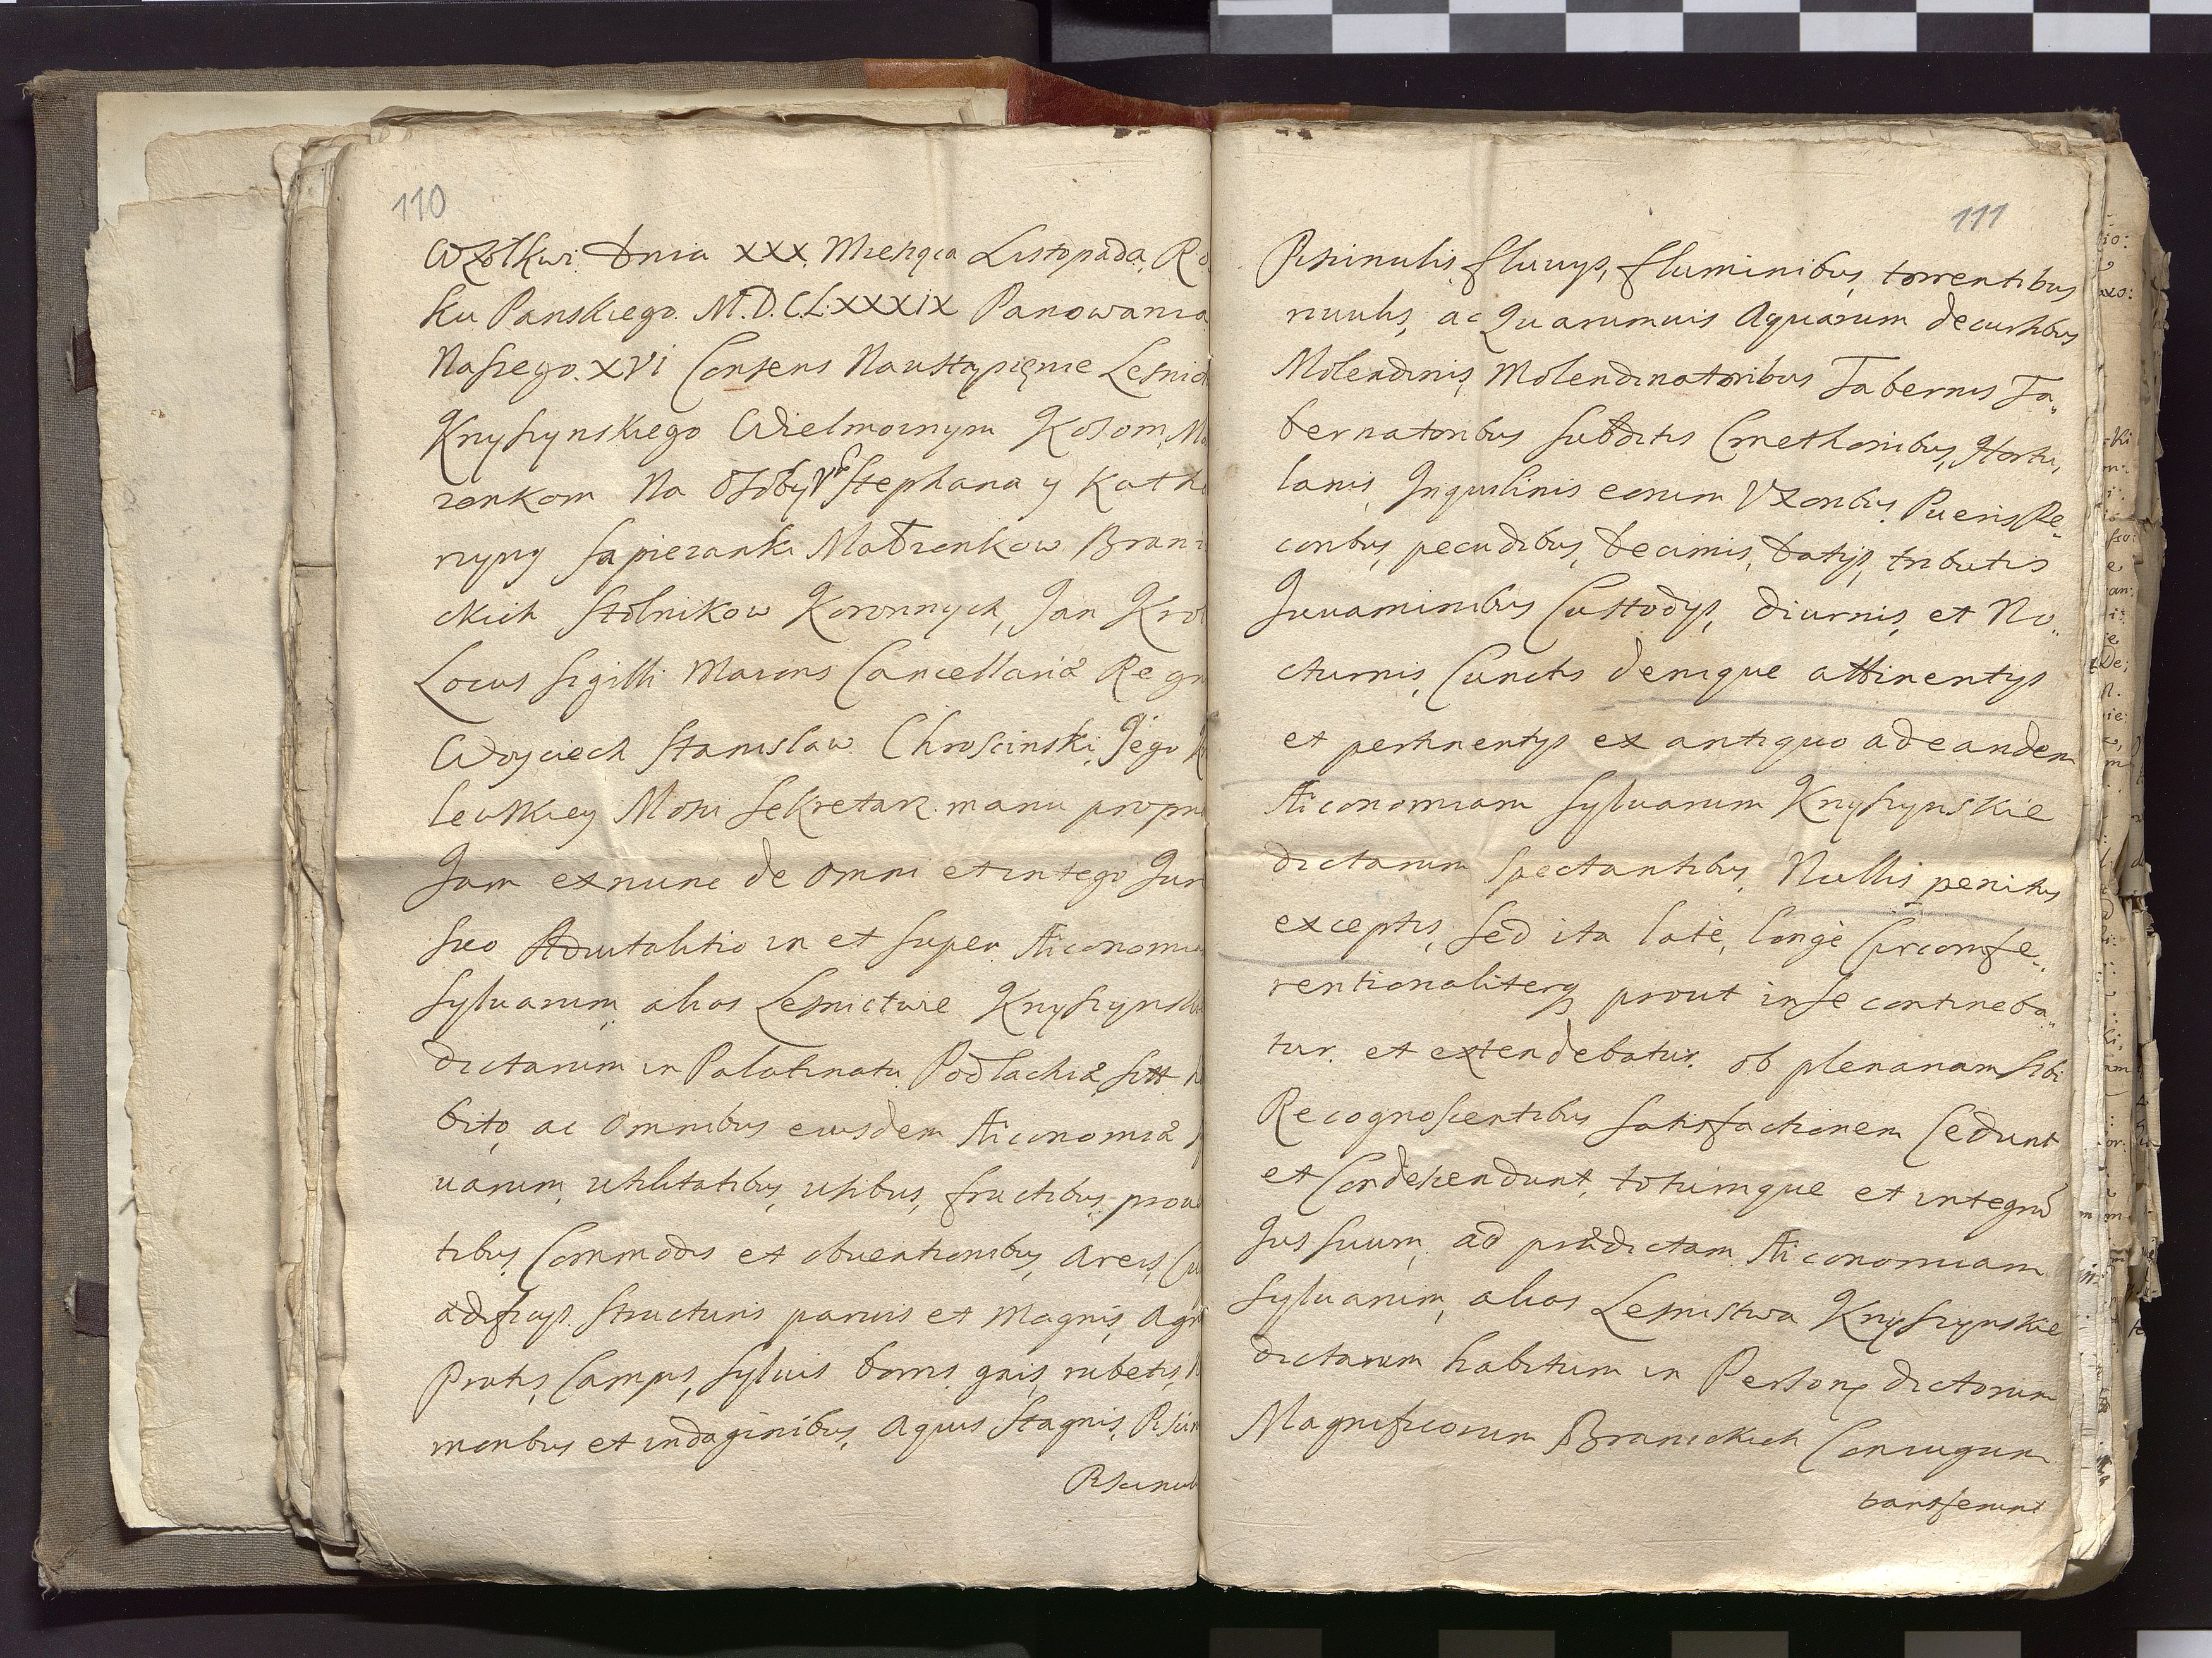 110
W Zołkwi. Dnia XXX. Miesiąca Listopada, Ro
ku Panskiego. M.D.C.L.XXXIX Panowania
Naszego. XVI Consens Na ustąpięnie Lesnict
Knyszynskiego Wielmoznym Kosom, Mał
zonkom Na Osoby Vr Stephana y Kathe
ryny Sapiezanki Małzonkow Brani
ckich Stolnikow Koronnych, Jan Krol
Locus Sigilli Maioris Cancellariæ Regn
Woyciech Stanisław Chroscinski, Jego K
lewskiey Mosci Sekretarz. manu propri
Jam ex nunc de omni et integro Jur
suo Aduitalitio in et super Æconomia
Syluarum alias Lesnictwie Knyszynski
dictarum in Palatinatu Podlachiæ, sitt h
bito, ac omnibus eiusdem Æconomiæ S
uarum, utilitatibus, usibus, fructibus prou
tibus, Commodis et obuentionibus, areis, Cu
ædificijs. Structuris paruis et Magnis, Agr
Pratis, Campis, Syluis borris gais, rubetis,
moribus et indaginibus, Aquis Stagnis, Piscin
Piscinul
111
Piscinulis fluuijs, fluminibus, torrentibus
riuulis, ac Quarumuis Aquarum decursibus
Molendinis, Molendinatoribus Tabernis Ta„
bernatoribus subditis Cmethonibus, Hortu„
lanis, Inquilinis eorum Uxoribus, Pueris Pe„
coribus, pecudibus, Decimis, Datijs, tributis
Juuaminibus Custodijs, diurnis, et No„
cturnis, Cunctis denique attinentijs
et pertinentijs ex antiquo ad eandem
Æconomiam Syluarum Knyszynskie
dictarum spectantibus, Nullis penitus
exceptis, sed ita latè, longè Circumfe„
rentionaliterq prout in se contineba„
tur. et extendebatur. ob plenariam sibi
Recognoscentibus satisfactionem Cedunt
et Condescendunt, totumque et integrū
Jus suum, ad prædictam Æconomiam
Syluarum, alias Lesnistwa Knyszynskie
dictarum habitum in Personas dictorum
Magnificorum Branickich Coniugum
transferunt